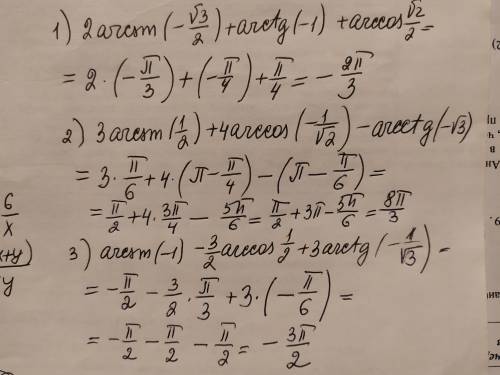 1) 2 arcsin (-√3/2) + arctg (-1) + arccos √2/2 =
= 2 · (-π/3) + (-π/4) + π/4 = - 2π/3
2) 3 arcsin (1/2) + 4 arccos (-1/√2) - arcctg (-√3)
= 3 · π/6 + 4 · (π - π/4) - (π - π/6) =
= π/2 + 4 · 3π/4 - 5π/6 = π/2 + 3π - 5π/6 = 8π/3
3) arcsin (-1) - 3/2 arccos 1/2 + 3 arctg (-1/√3) =
= - π/2 - 3/2 · π/3 + 3 · (-π/6) =
= - π/2 - π/2 - π/2 = - 3π/2
6/x
x+y)
y